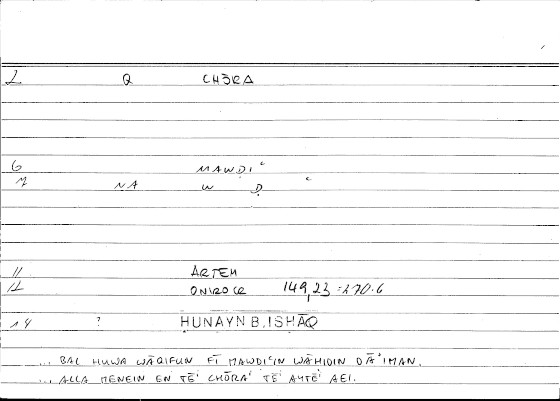 1 Q CHŌRA
6 MAWḌIʿ
7 NA W Ḍ ʿ
11 ARTEM
12 ONIROCR 149,23 = 270.6
14 ? HUNAYN B. ISHĀQ
... BAL HUWA WĀQIFUN FĪ MAWḌIʿIN WĀHIDIN DĀʾIMAN.
... ALLA MENEIN EN TĒ' CHŌRA' TĒ' AYTĒ' AEI.